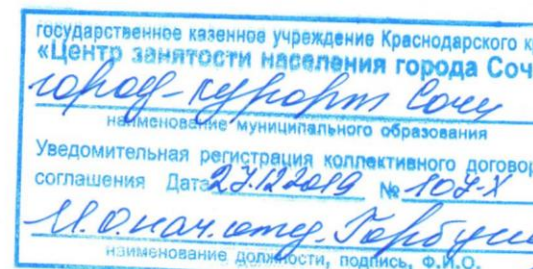 государственное казенное учреждение Краснодарского к
«Центр занятости населения города Соч
город-курорт Сочи
наименование муниципального образования
Уведомительная регистрация коллективного договор
соглашения Дата 27.12.2019 № 107-Х
И.О.нач.отд.
наименование должности, подпись, Ф.И.О.